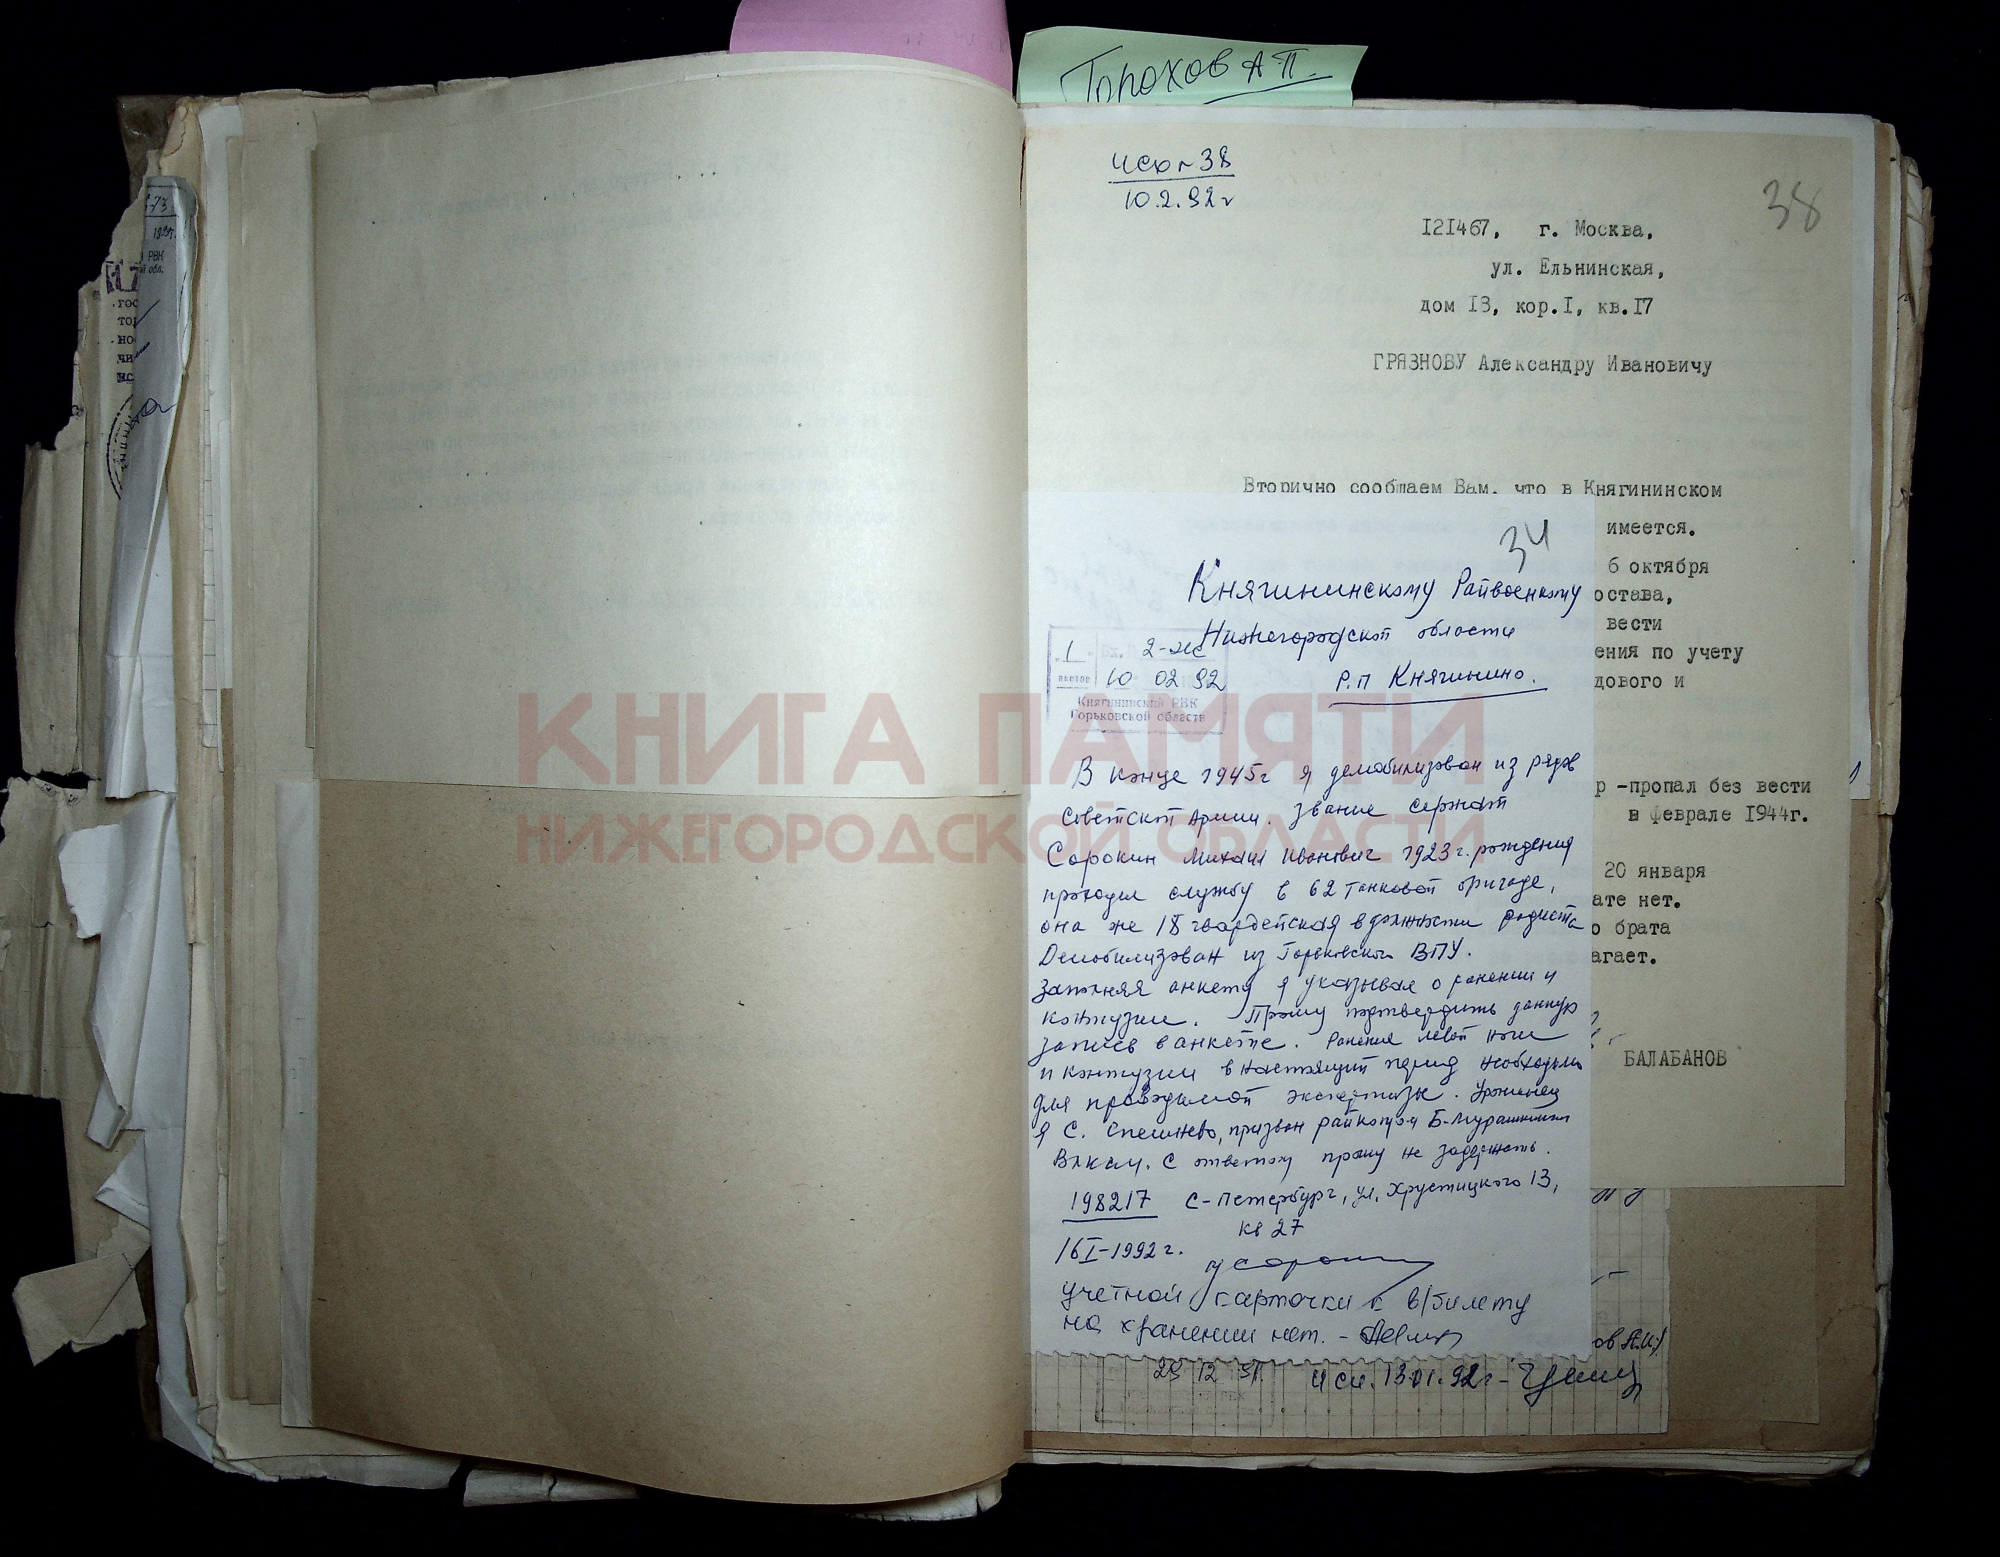 Горохов А.П.
исх 38
10.2.92г
38
121467, г. Москва,
ул. Ельнинская,
дом 13, кор.1, кв.17
ГРЯЗНОВУ Александру Ивановичу
Вторично сообщаем Вам, что в Княгининском
имеется.
6 октября
остава,
вести
ения по учету
дового и
р -пропал без вести
в феврале 1944г.
20 января
ате нет.
о брата
агает.
БАЛАБАНОВ
34
Княгининскому Райвоенкому
Нижегородской области
р.п Княгинино.
1 Вх. 2-ж
листов 10 02 92
Княгининский РВК
Горьковской области
В конце 1945г я демобилизован из рядов
Советской Армии. Звание сержант
Сорокин Михаил Иванович 1923г. рождения
проходил службу в 62 танковой бригаде,
она же 18 гвардейская в должности радиста
Демобилизован из Горьковского ВПУ.
Заполняя анкету я указывал о ранении и
контузии. Прошу подтвердить данную
запись в анкете. Ранения левой ноги
и контузии в настоящий период необходимы
для проводимой экспертизы. Уроженец
я с. Спешнево, призван райкомом Б-Мурашкинским
В/ком. С ответом прошу не задержать.
198217 С-Петербург, ул. Хрустицкого 13,
кв 27
16 I-1992г.
учетной карточки к в/билету
на хранении нет. -
ов А.И/
29 12 91 исх. 13.01.92г-
КНИГА ПАМЯТИ
НИЖЕГОРОДСКОЙ ОБЛАСТИ